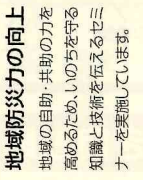 地域防災力の向上
地域の自助・共助の力を
高めるため、いのちを守る
知識と技術を伝えるセミ
ナーを実施しています。